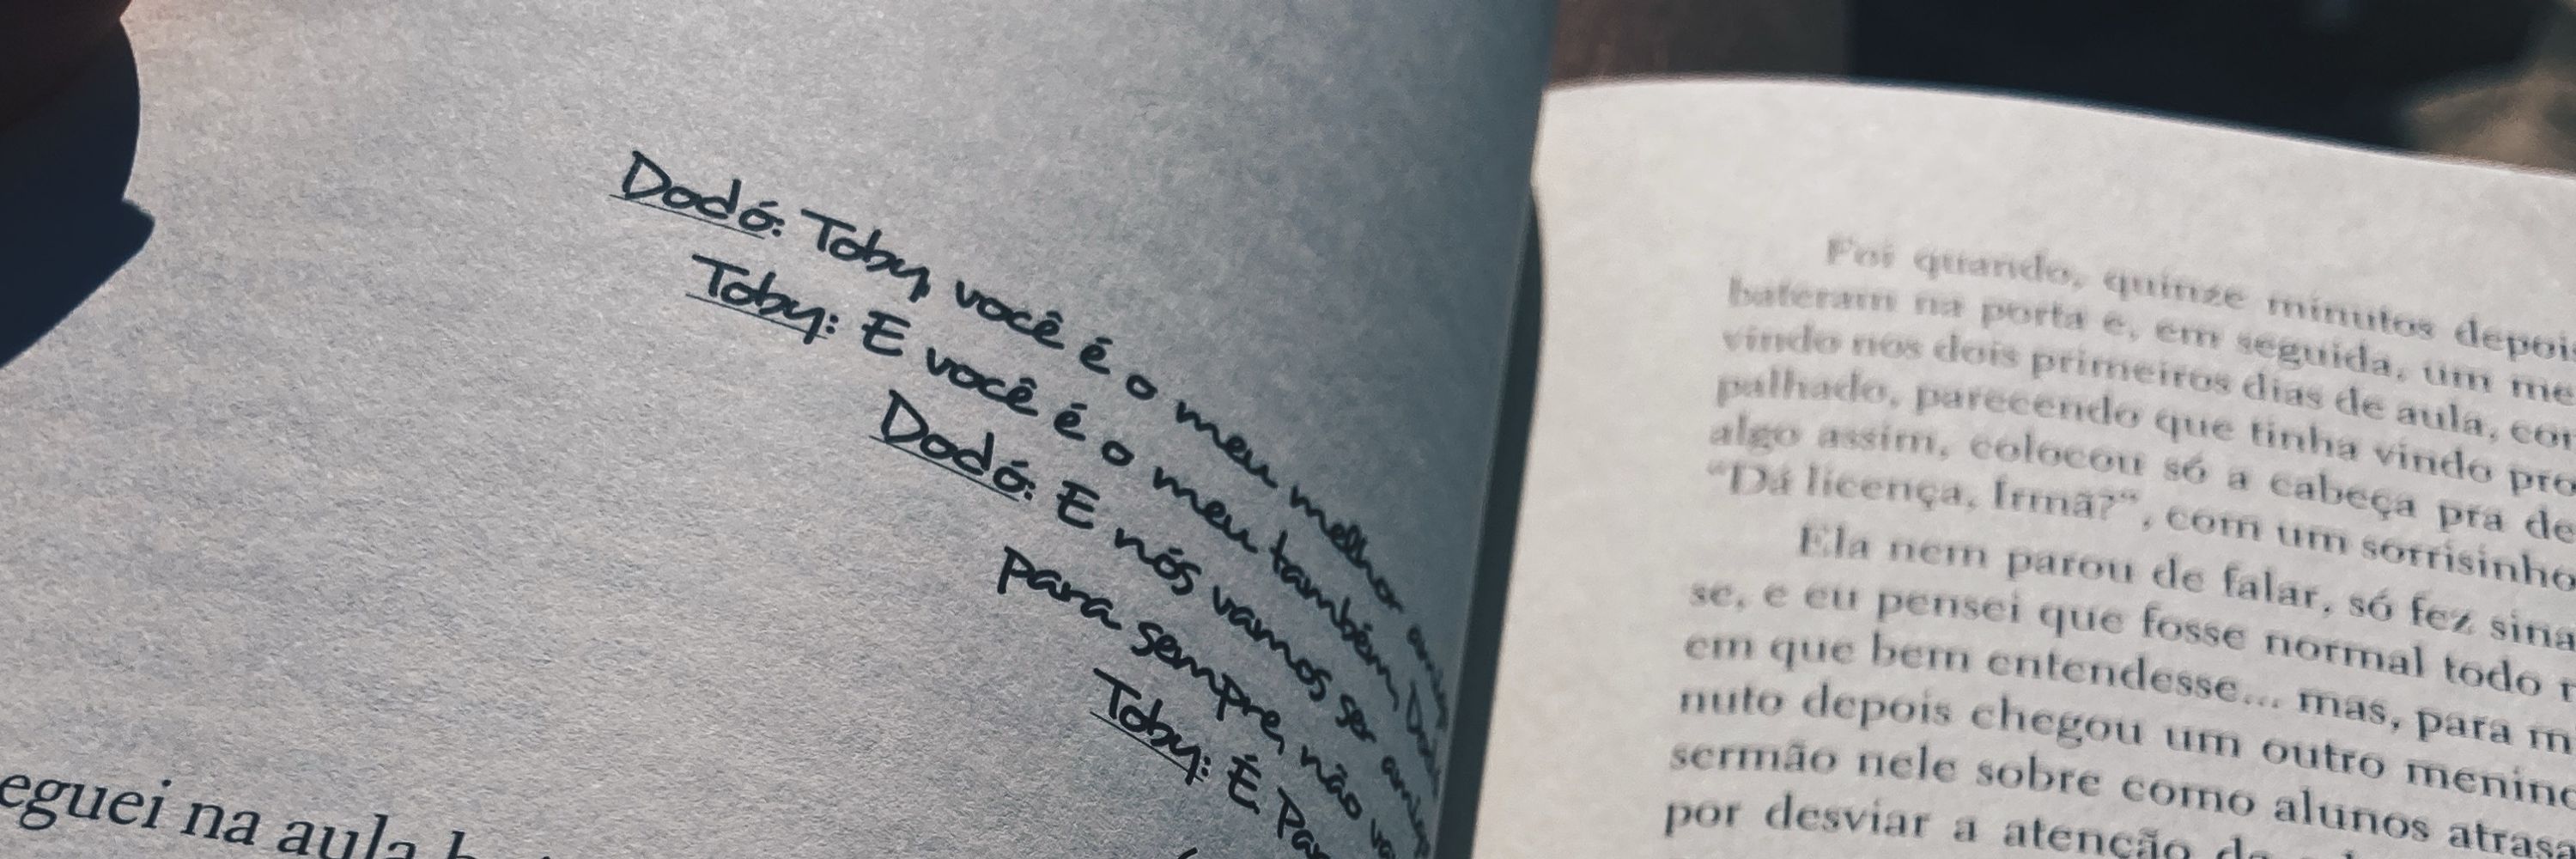 Dodó: Toby, você é o meu melhor
Toby: E você é o meu também,
Dodó: E nós vamos ser
para sempre, não
Toby: É
eguei na aula
Foi quando, quinze minutos depois
bateram na porta e, em seguida, um
vindo nos dois primeiros dias de aula,
palhado, parecendo que tinha vindo
algo assim, colocou só a cabeça pra
“Dá licença, Irmã?”, com um sorrisinho
Ela nem parou de falar, só fez
se, e eu pensei que fosse normal todo
em que bem entendesse... mas, para
nuto depois chegou um outro menino
sermão nele sobre como alunos
por desviar a atenção